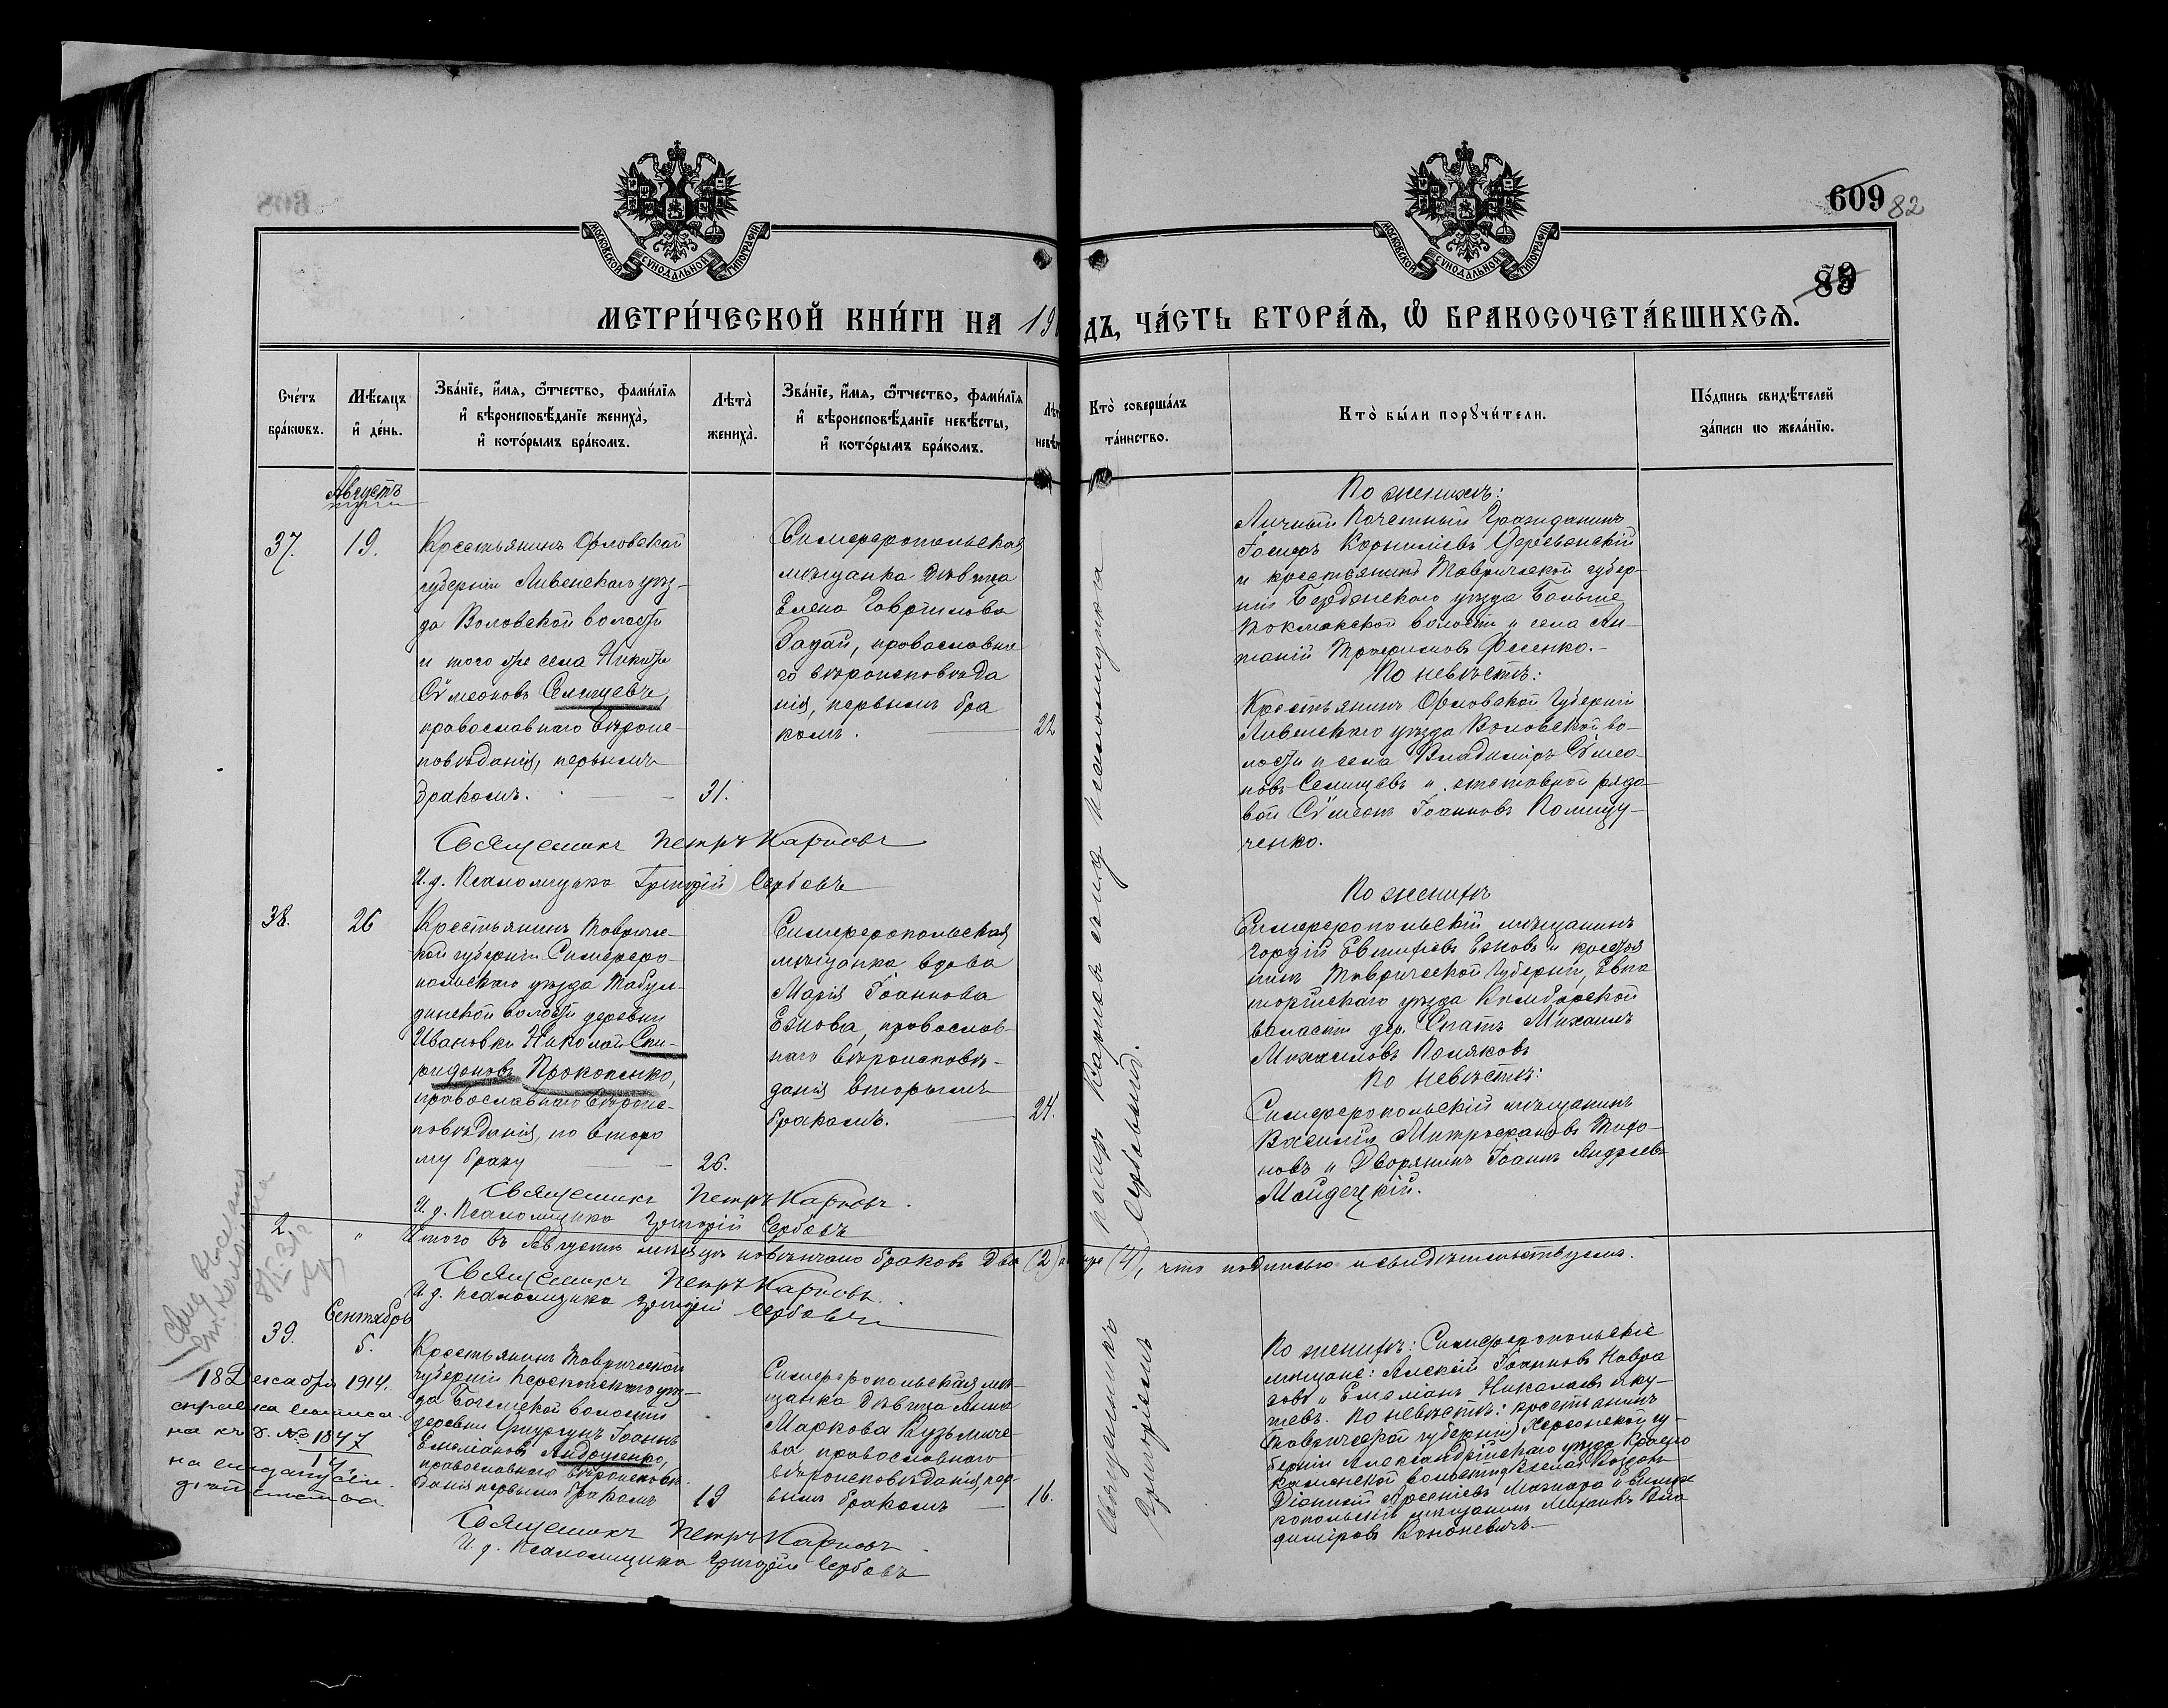 609 82
МОСКОВСКОЙ СУНОДАЛЬНОЙ ТИПОГРАФІИ
МОСКОВСКОЙ СУНОДАЛЬНОЙ ТИПОГРАФІИ
89
МЕТРИ́ЧЕСКОЙ КНИ́ГИ НА 19
ДЪ, ЧА́СТЬ ВТОРА́Я, Ѡ БРАКОСОЧЕТА́ВШИХСЯ.
Сче́тъ бра́кѡвъ.
Мѣ́сяцъ и҆ де́нь.
Зва́нїе, и҆́мя, ѻ҆́тчество, фами́лїя
и҆ вѣроисповѣ́данїе жениха̀,
и҆ кото́рымъ бра́комъ.
Лѣта̀ жениха̀.
Зва́нїе, и҆́мя, ѻ҆́тчество, фами́лїя
и҆ вѣроисповѣ́данїе невѣ́сты,
и҆ кото́рымъ бра́комъ.
Кто̀ соверша́лъ
та́инство.
Кто̀ бы́ли порꙋчи́тели.
По́дпись свидѣ́телей
за́писи по жела́нїю.
Августъ
37.
19.
Крестьянинъ Орловской
губерніи Ливенскаго уѣз-
да Воловской волости
и того же села Никита
Сѵмеоновъ Селищевъ,
православнаго вѣроис-
повѣданія, первымъ
бракомъ.
31.
Симферопольская
мѣщанка дѣвица
Елена Гаврилова
православна
го вѣроисповѣда
нія, первымъ бра
комъ.
22
По женихѣ:
Личный Почетный Гражданинъ
Іосифъ Корниліевъ Деревенскій
и крестьянинъ Таврической губер-
ніи Бердянскаго уѣзда Больше
Токмакской волости и села
Трофимовъ Фесенко.
По невѣстѣ:
Крестьянинъ Орловской Губерніи
Ливенскаго уѣзда Воловской во-
лости и села Владиміръ Сѵмео-
новъ Селищевъ и отставной рядо-
вой Сѵмеонъ Іоанновъ Полищу-
ченко.
Священникъ Петръ Карповъ
И. д. Псаломщика Григорій Сербовъ
38.
26
Крестьянинъ Тавриче-
кой губерніи Симферо-
польскаго уѣзда Табул-
динской волости деревни
Ивановки Николай Спи-
ридоновъ Прокопенко,
православнаго вѣроис-
повѣданія, по второ
му браку
26.
Симферопольская
мѣщанка вдова
Марія Іоаннова
Езнова, православ-
наго вѣроисповѣ-
данія вторымъ
бракомъ.
24.
По женихѣ
Симферопольскій мѣщанинъ
Гордій Евтифіевъ Езновъ и крестья
нинъ Таврической Губерніи, Евпа
торійскаго уѣзда
волости дер. Спатъ Михаилъ
Михаиловъ Поляковъ
По невѣстѣ:
Симферопольскій мѣщанинъ
Василій Митрофановъ Тихо-
новъ и Дворянинъ Іоаннъ Андреевъ
Майдецкій.
Священникъ Петръ Карповъ.
И. д. Псаломщика Григорій Сербовъ
2.
"
Итого въ Августѣ мѣсяцѣ повѣнчано браковъ два (2)
(4), что подписью и свидѣтельствуемъ.
Священникъ Петръ Карповъ.
И. д. псаломщика Григорій Сербовъ
Сентябрь
39.
5.
Крестьянинъ Таврической
губерніи Перекопскаго уѣз-
да Богемской волости
деревни Іоаннъ
Емеліановъ Андрущенко,
православнаго вѣроисповѣ-
данія первымъ бракомъ
19
Симферопольская мѣ-
щанка дѣвица Анна
Маркова Кузьмиче-
ва православнаго
вѣроисповѣданія, пер
вымъ бракомъ
16.
По женихѣ: Симферопольскіе
мѣщане: Алексій Іоанновъ
и Емеліанъ Николаевъ
По невѣстѣ: крестьянинъ
Херсонской гу-
берніи Александрійскаго уѣзда Красно
каменской волости
Діонисій Арсеніевъ и Симфе
ропольскій мѣщанинъ Михаилъ Вла
диміровъ Кононевичъ.
Священникъ Петръ Карповъ.
И. д. Псаломщика Григорій Сербовъ
18 Декабря 1914.
справка
на къ д. № 1847
14
Священникъ Петръ Карповъ съ и. д. псаломщика
Григоріемъ Сербовымъ.